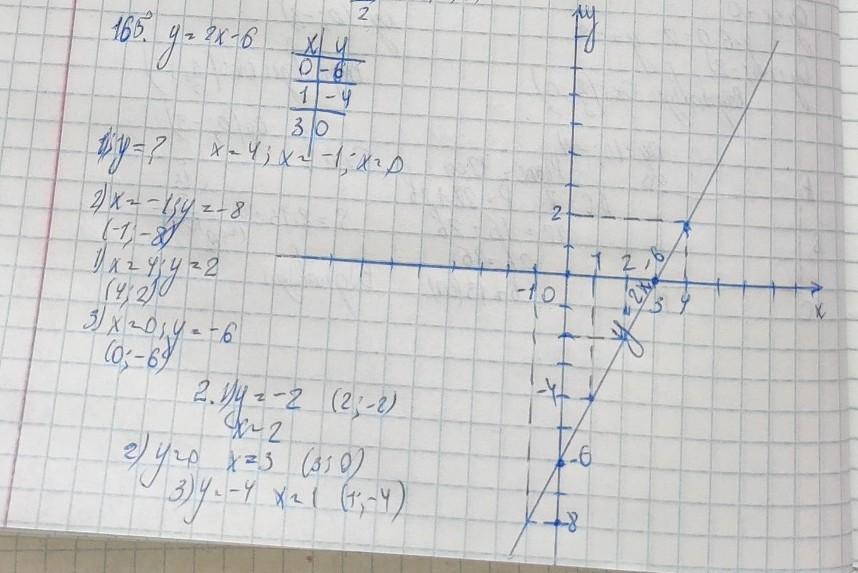 2
165. y = 2x-6
x y
0 -6
1 -4
3 0
1) y = ? x = 4; x = -1; x = 0
2) x = -1; y = -8
(-1; -8)
1) x = 4; y = 2
(4; 2)
3) x = 0; y = -6
(0; -6)
2. 1) y = -2 (2; -2)
x = 2
2) y = 0 x = 3 (3; 0)
3) y = -4 x = 1 (1; -4)
y
2
-1 0 1 2 3 4
x
y = 2x-6
-4
-6
-8